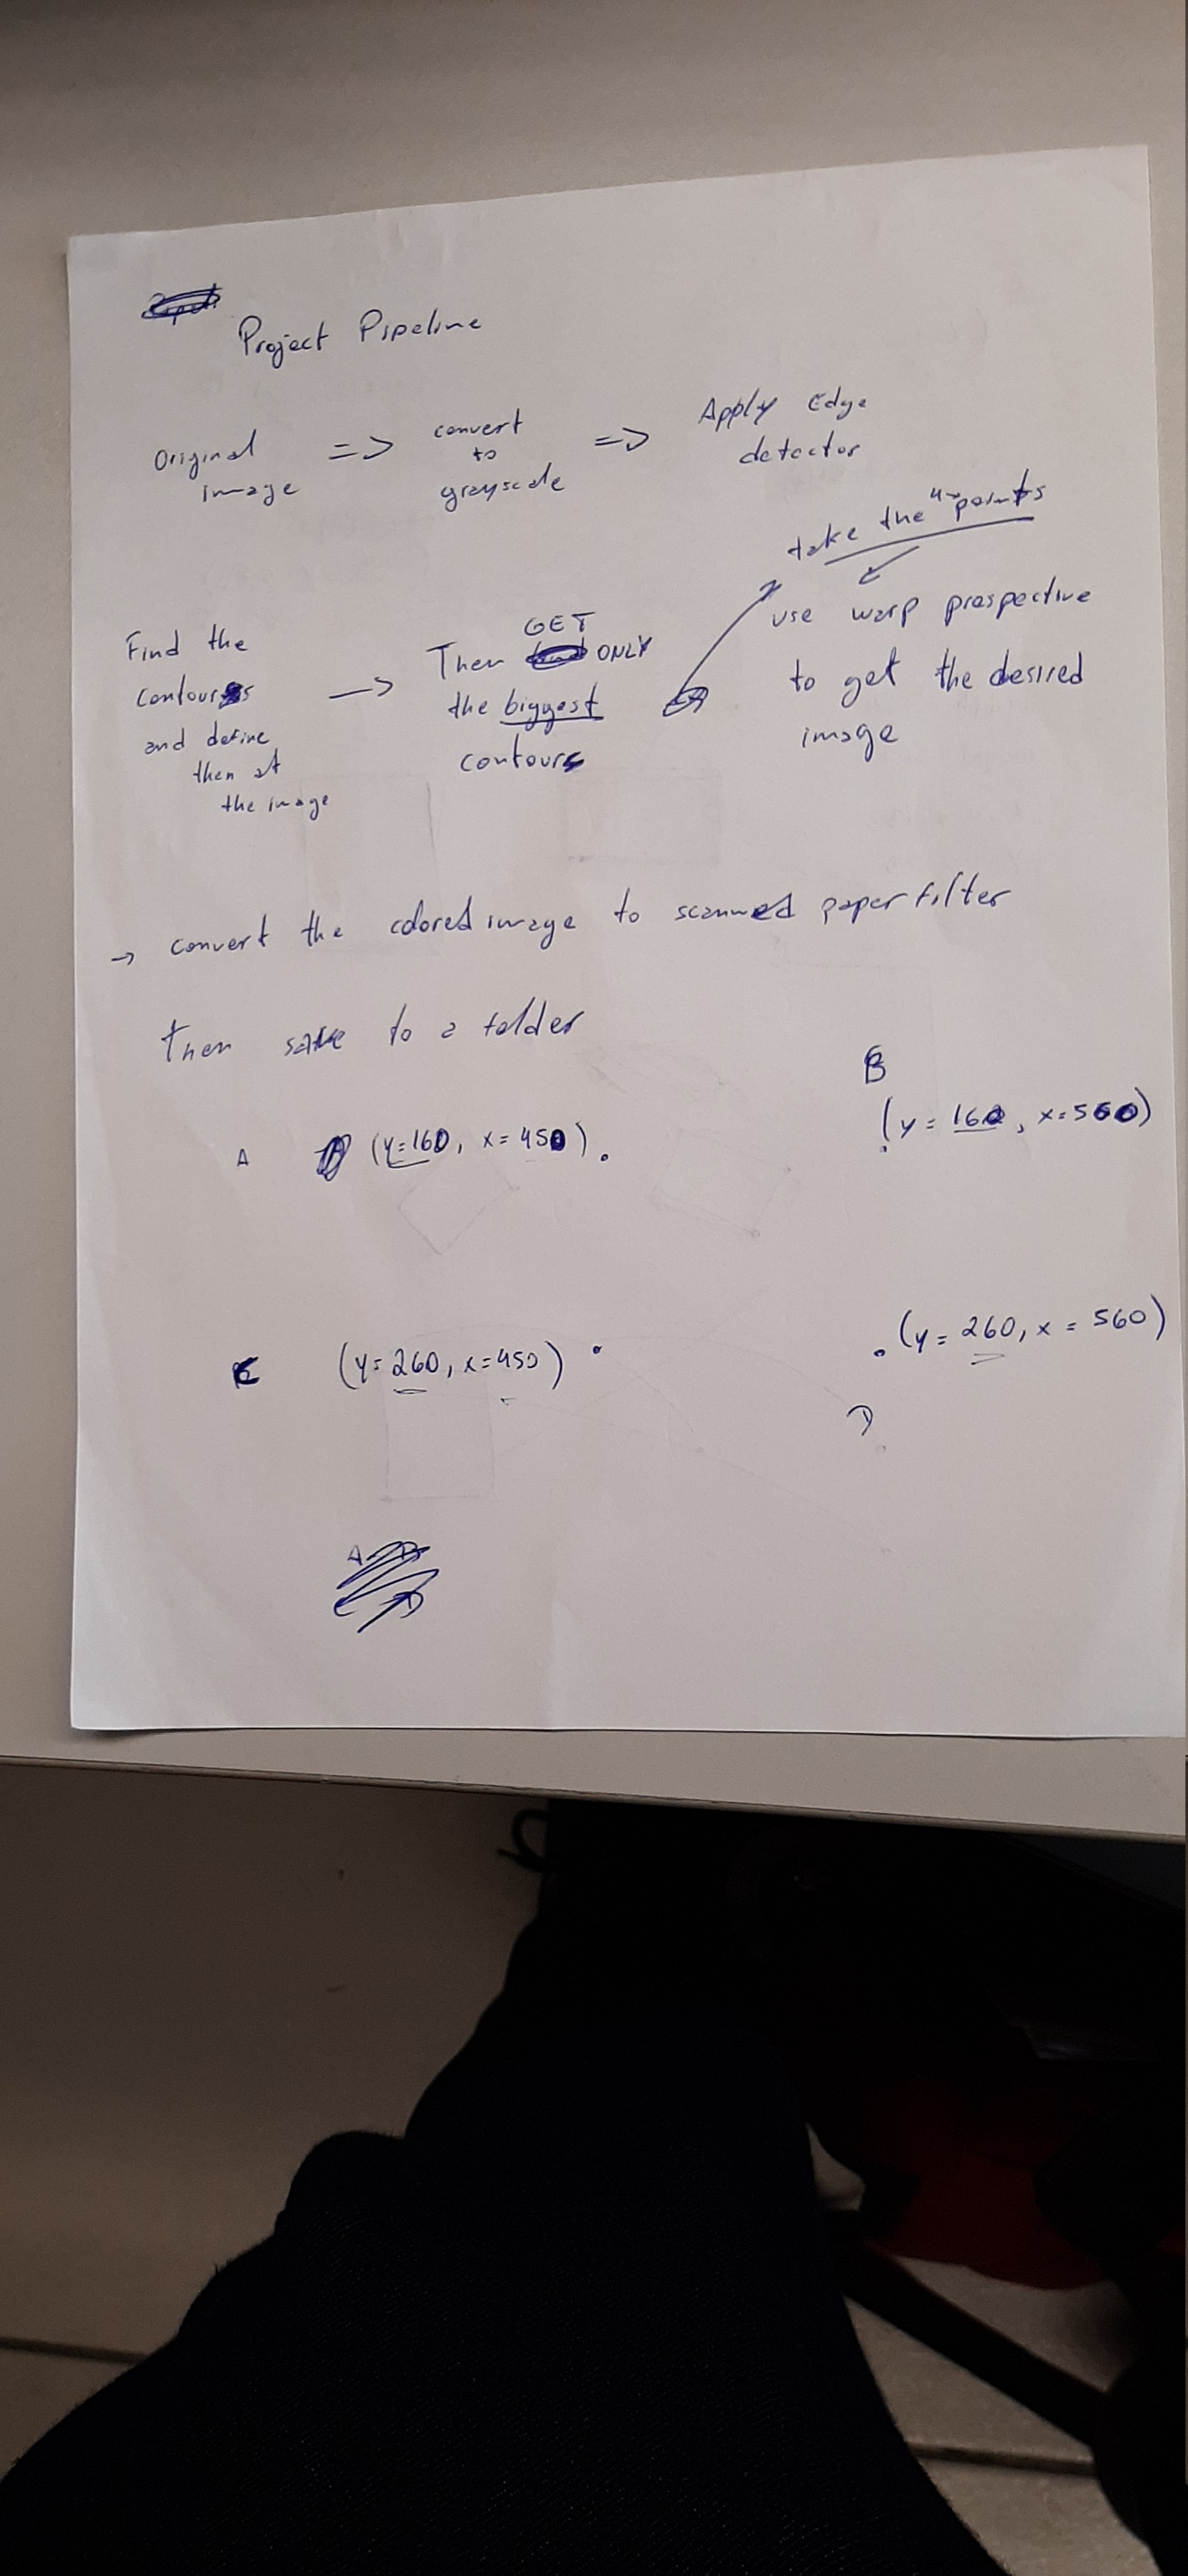 Project Pipeline
Original image => convert to grayscale => Apply Edge detector
Find the contours and define then at the image -> Then GET ONLY the biggest contours
take the 4 points
use warp prospective to get the desired image
-> convert the colored image to scanned paper filter
Then save to a folder
B
A (y=160, x=450) (y=160, x=560)
C (y=260, x=450) (y=260, x=560)
D
A